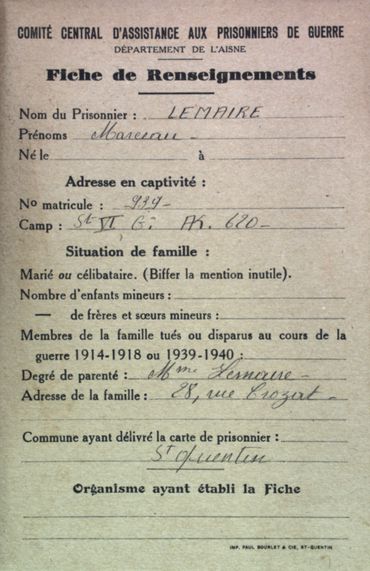 COMITÉ CENTRAL D'ASSISTANCE AUX PRISONNIERS DE GUERRE
DÉPARTEMENT DE L'AISNE
Fiche de Renseignements
Nom du Prisonnier : LEMAIRE
Prénoms Marceau
Né le à
Adresse en captivité :
No matricule : 939
Camp : St VI G. AK. 620
Situation de famille :
Marié ou célibataire. (Biffer la mention inutile).
Nombre d'enfants mineurs :
— de frères et sœurs mineurs :
Membres de la famille tués ou disparus au cours de la
guerre 1914-1918 ou 1939-1940 :
Degré de parenté : Mme Lemaire
Adresse de la famille : 28, rue Crozat
Commune ayant délivré la carte de prisonnier :
St Quentin
Organisme ayant établi la Fiche
IMP. PAUL BOURLET & CIE, ST-QUENTIN